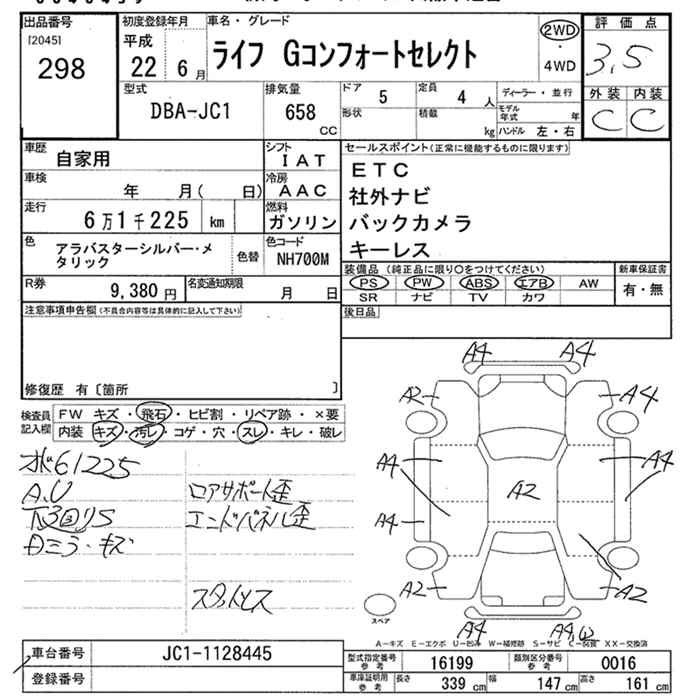 出品番号
[2045]
298
初度登録年月
平成
22 6 月
車名・グレード
ライフ Gコンフォートセレクト
2WD
・
4WD
評価点
3,5
外装 内装
C C
型式
DBA-JC1
排気量
658
CC
ドア
5
定員
4 人
ディーラー・並行
形状
積載
kg
モデル年式 年
ハンドル 左・右
車歴
自家用
シフト
IAT
車検
年 月( 日)
冷房
AAC
走行
6万1千225 km
燃料
ガソリン
色
アラバスターシルバー・メタリック
色替
色コード
NH700M
R券
9,380 円
名変通知期限
月 日
セールスポイント(正常に機能するものに限ります)
ETC
社外ナビ
バックカメラ
キーレス
装備品(純正品に限り〇をつけてください)
新車保証書
PS PW ABS エアB AW
SR ナビ TV カワ
有・無
後日品
注意事項申告欄(不具合内容等は具体的に記入して下さい)
修復歴 有〔箇所 〕
検査員記入欄
FW キズ・飛石・ヒビ割・リペア跡・×要
内装 キズ・汚レ・コゲ・穴・スレ・キレ・破レ
61225
A.U
ロアサポート歪
エンドパネル歪
ミラ・キズ
スタットレス
A4 A4
A2 A4
A4 A4
A2
A4
A2 A2
A4 A4,W
スペア
A-キズ E-エクボ U-凹ル W-補修跡 S-サビ C-腐食 XX-交換済
車台番号
JC1-1128445
登録番号
型式指定番号参考
16199
類別区分番号参考
0016
車庫証明用参考
長さ 339 cm
幅 147 cm
高さ 161 cm